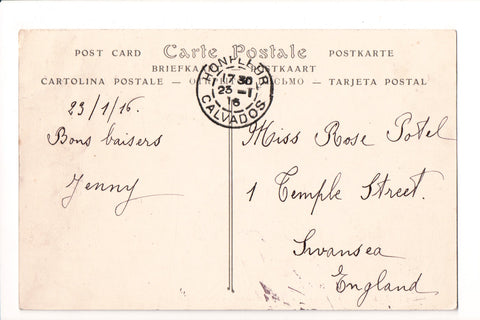 POST CARD Carte Postale POSTKARTE
CARTOLINA POSTALE — — TARJETA POSTAL
HONFLEUR
17 30
23 - 1
16
CALVADOS
23/1/16.
Bons baisers
Jenny
Miss Rose Potel
1 Temple Street.
Swansea
England